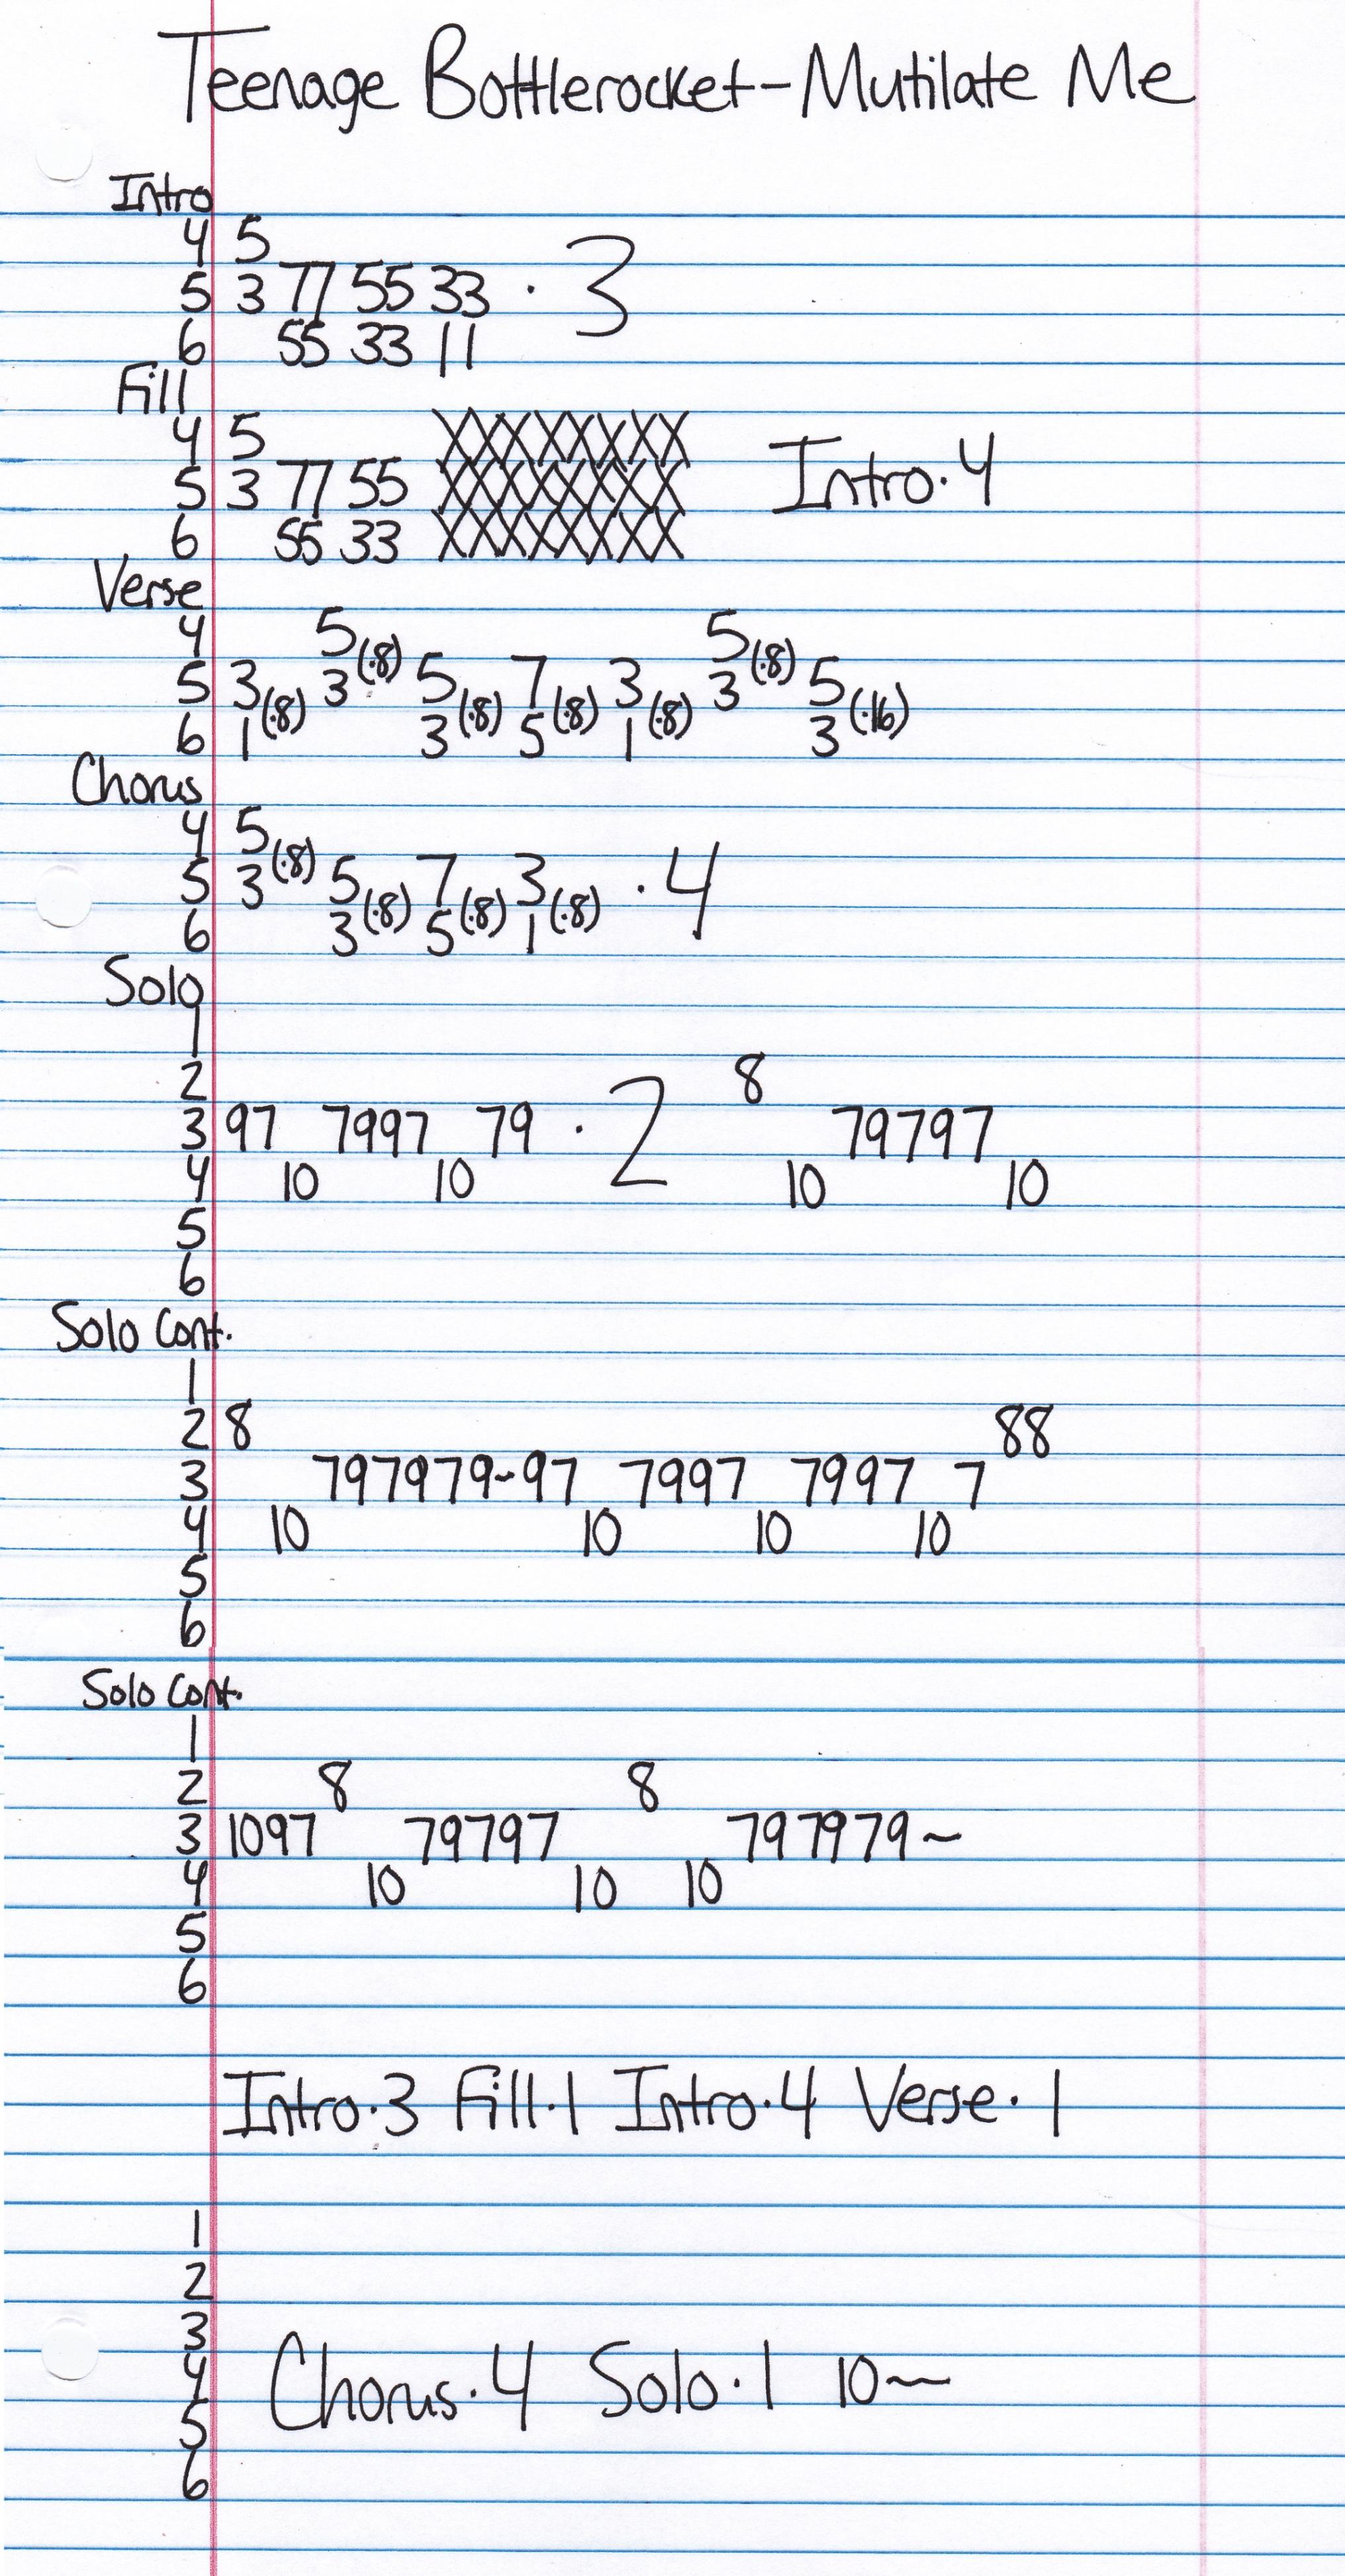 Teenage Bottlerocket-Mutilate Me
Intro
4 5
5 3 77 55 33 · 3
6 55 33 11
Fill
4 5 XXXXXXXX
5 3 77 55 XXXXXXXX Intro·4
6 55 33 XXXXXXXX
Verse
4 5(·8) 5(·8)
5 3(·8) 3 5(·8) 7(·8) 3(·8) 3 5(·16)
6 1 3 5 1 3
Chorus
4 5(·8)
5 3 5(·8) 7(·8) 3(·8) · 4
6 3 5 1
Solo
1
2 8
3 97 7997 79 · 2 79797
4 10 10 10 10
5
6
Solo Cont.
1
2 8 88
3 797979~97 7997 7997 7
4 10 10 10 10
5
6
Solo Cont.
1
2 8 8
3 1097 79797 797979~
4 10 10 10
5
6
Intro·3 Fill·1 Intro·4 Verse·1
1
2
3
4 Chorus·4 Solo·1 10~
5
6